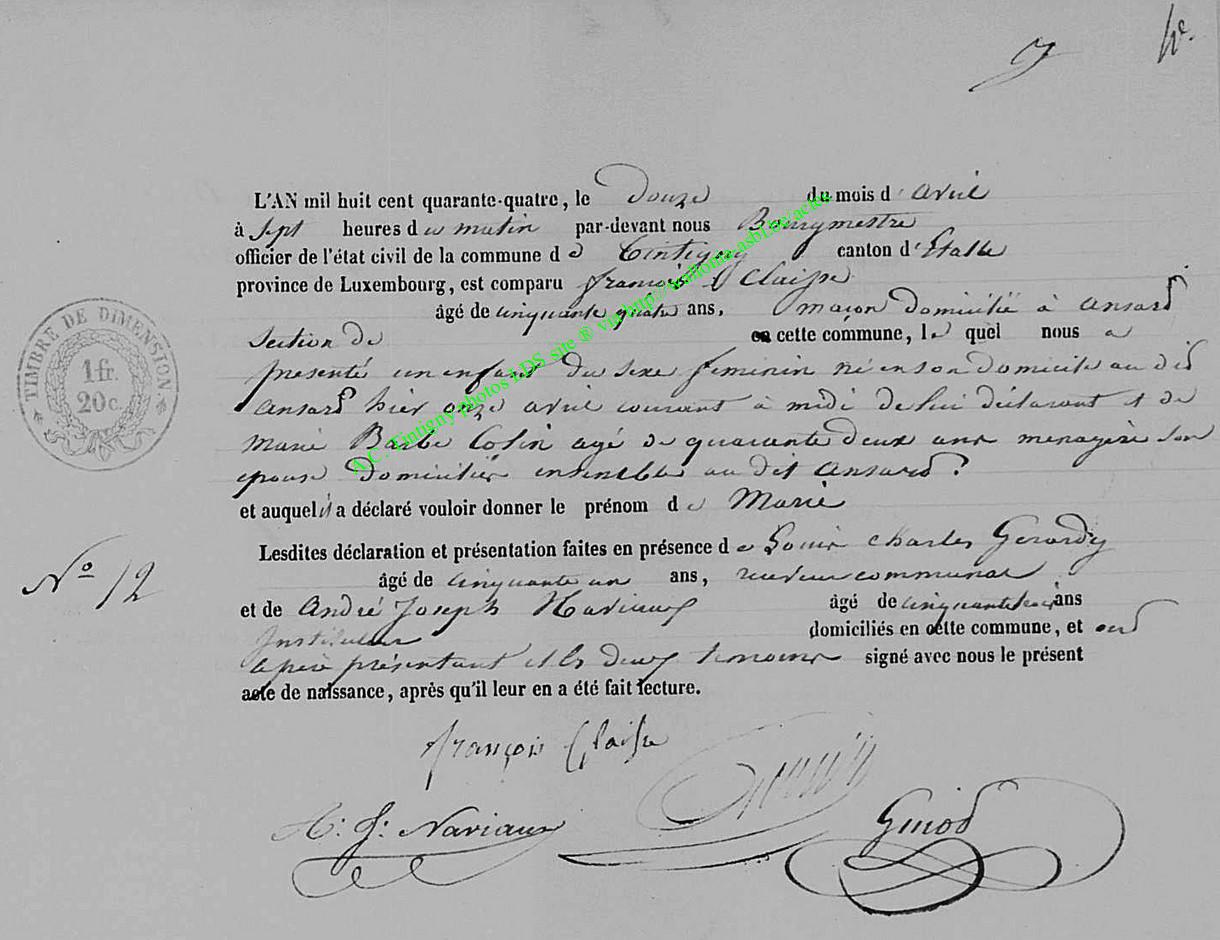 7
L'AN mil huit cent quarante-quatre, le Douze du mois d'avril
à Sept heures du matin par-devant nous Bourgmestre
officier de l'état civil de la commune de Tintigny canton d'Etalle
province de Luxembourg, est comparu françois Claisse
âgé de cinquante quatre ans, maçon domicilié à ansard
Section de cette commune, le quel nous a
présenté un enfant du sexe feminin né en son domicile au dit
ansard hier onze avril courant à midi de lui déclarant et de
Marie Barbe Colin agé de quarante deux ans menagère son
epouse domiciliés ensembles au dit ansard
et auquel il a déclaré vouloir donner le prénom de Marie
Lesdites déclaration et présentation faites en présence de Louis Charles Gerardy
âgé de cinquante un ans, receveur communal
et de André Joseph Naviaux âgé de ans
Instituteur domiciliés en cette commune, et ont
le père présentant et les deux temoins signé avec nous le présent
acte de naissance, après qu'il leur en a été fait lecture.
françois Claisse
A: J: Naviaux
Ginod
N° 12
TIMBRE DE DIMENSION
1 fr.
20 c.
A.C. Tintigny photos LDS site ® via http://scalloma-asbl.be/actes